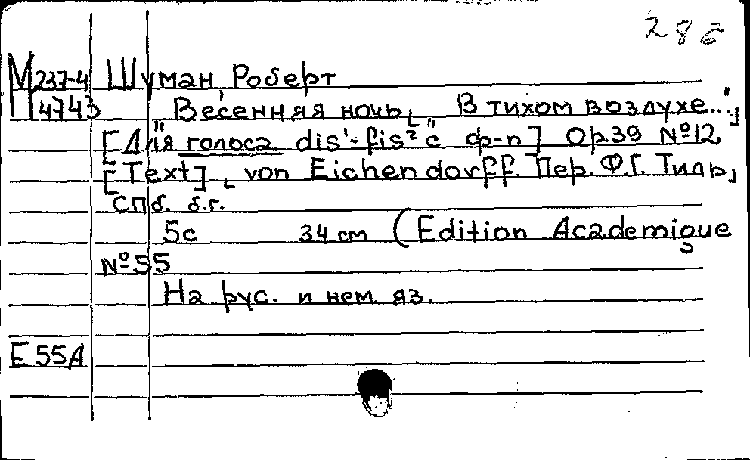 286
М 237-4 Шуман, Роберт
М 4743 Весенняя ночь, „В тихом воздухе..."
[Для голоса dis'-fis² с ф-п] Op.39 №12
[Text] von Eichendorff. Пер. Ф.Г. Тиль
Спб. б.г.
5с 34 см (Edition Academique
№55
На рус. и нем. яз.
Е 55А